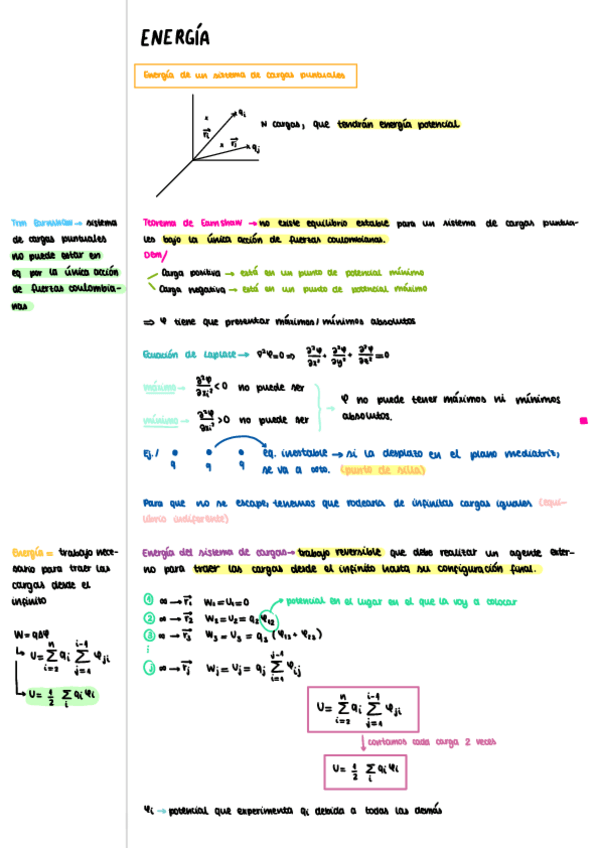 ENERGÍA
Energía de un sistema de cargas puntuales
qi
ri
rj
qj
N cargas, que tendrán energía potencial
Trm Earnshaw → sistema
de cargas puntuales
no puede estar en
eq por la única acción
de fuerzas coulombia-
nas
Teorema de Earnshaw → no existe equilibrio estable para un sistema de cargas puntua-
les bajo la única acción de fuerzas coulombianas.
Dem/
Carga positiva → está en un punto de potencial mínimo
Carga negativa → está en un punto de potencial máximo
⇒ φ tiene que presentar máximos/mínimos absolutos
Ecuación de Laplace → ∇²φ=0 ⇒ ∂²φ/∂x² + ∂²φ/∂y² + ∂²φ/∂z² = 0
máximo → ∂²φ/∂xi² < 0 no puede ser
mínimo → ∂²φ/∂xi² > 0 no puede ser
→ φ no puede tener máximos ni mínimos
absolutos.
Ej./ q q q eq. inestable → si la desplazo en el plano mediatriz,
se va a +∞. (punto de silla)
Para que no se escape, tenemos que rodearla de infinitas cargas iguales (equi-
librio indiferente)
Energía = trabajo nece-
sario para traer las
cargas desde el
infinito
W = qΔφ
↳ U = Σ(i=2, n) qi Σ(j=1, i-1) φji
↳ U = 1/2 Σi qi φi
Energía del sistema de cargas → trabajo reversible que debe realizar un agente exter-
no para traer las cargas desde el infinito hasta su configuración final.
① ∞ → r1 W1 = U1 = 0
→ potencial en el lugar en el que la voy a colocar
② ∞ → r2 W2 = U2 = q2 φ12
③ ∞ → r3 W3 = U3 = q3 (φ13 + φ23)
⋮
ⓙ ∞ → rj Wj = Uj = qj Σ(i=1, j-1) φij
U = Σ(i=2, n) qi Σ(j=1, i-1) φji
↓ contamos cada carga 2 veces
U = 1/2 Σi qi φi
φi → potencial que experimenta qi debida a todas las demás